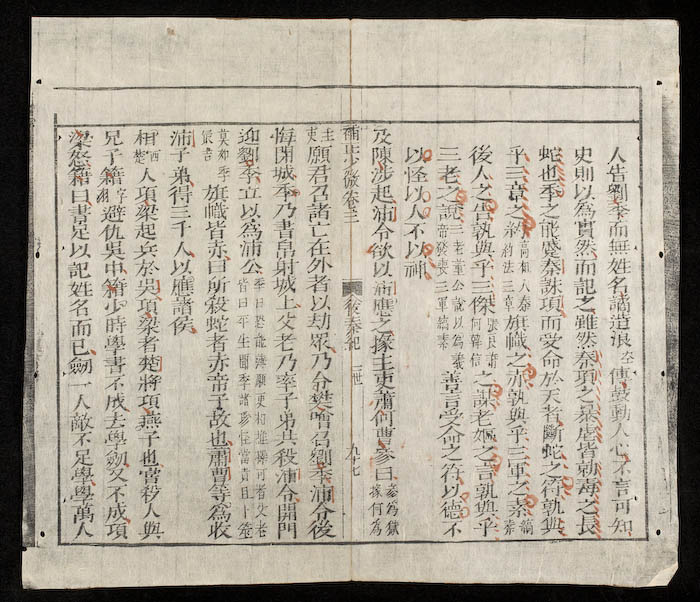 人告劉季而無姓名諸道浪傳鼓動人心不言可知
史則以為實然而記之雖然秦項之暴虐皆執毒之長
蛇也季之能蹙秦誅項而受命於天者斷蛇之符孰與
乎三章之約法三章旗幟之赤孰與乎三軍之素縞素
後人之告孰與乎三傑張良蕭何韓信之謀老嫗之言孰與乎
三老之說三老董公說以為義帝發喪三軍縞素善言受命之符以德不
以怪以人不以神
及陳涉起沛令欲以沛應之掾主吏蕭何曹參曰參為獄掾何為
補正少微卷三 後秦紀 二世 九十七
主吏願君召諸亡在外者以劫眾乃令樊噲召劉季沛令後
悔閉城季乃書帛射城上父老乃率子弟共殺沛令開門
迎劉季立以為沛公季曰恐能薄願更相推擇可者父老皆曰平生聞季諸珍怪當貴且卜筮
莫如季最吉旗幟皆赤曰所殺蛇者赤帝子故也蕭曹等為收
沛子弟得三千人以應諸侯
相西楚人項梁起兵於吳項梁者楚將項燕子也嘗殺人與
兄子籍字羽避仇吳中籍少時學書不成去學劒又不成項
梁怒籍曰書足以記姓名而已劒一人敵不足學學萬人